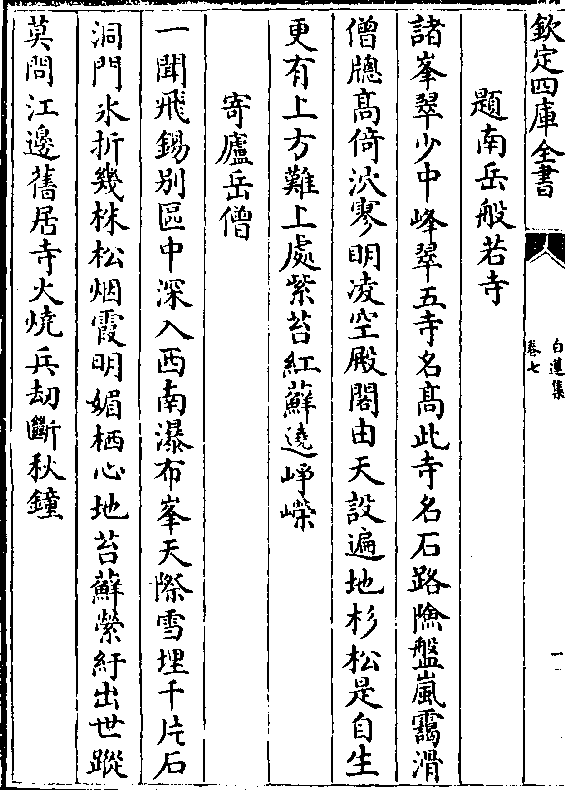 欽定四庫全書
白蓮集
卷七
一
題南岳般若寺
諸峯翠少中峰翠五寺名髙此寺名石路險盤嵐靄滑
僧牕髙倚泬寥明凌空殿閣由天設遍地杉松是自生
更有上方難上處紫苔紅蘚遶崢嶸
寄廬岳僧
一聞飛錫别區中深入西南瀑布峯天際雪埋千片石
洞門氷折幾株松烟霞明媚栖心地苔蘚縈紆出世蹤
莫問江邊舊居寺火燒兵刼斷秋鐘